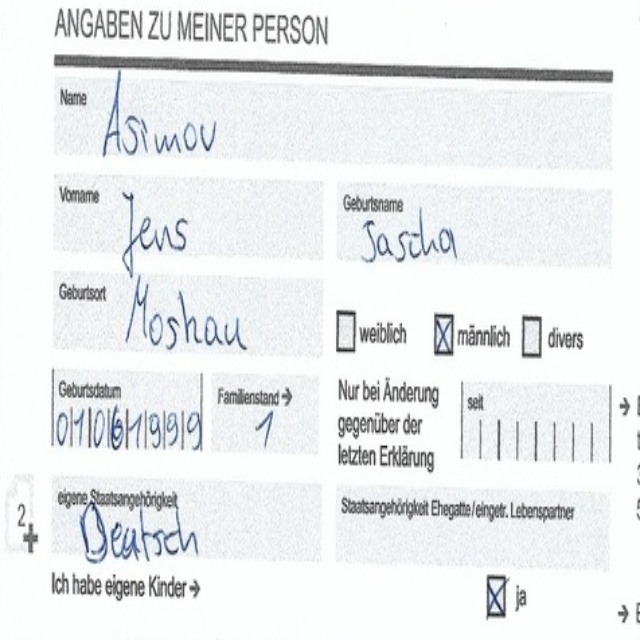 ANGABEN ZU MEINER PERSON
Name
Asimov
Vorname
Jens
Geburtsname
Sascha
Geburtsort
Moskau
weiblich ☒ männlich divers
Geburtsdatum
01061999
Familienstand →
1
Nur bei Änderung
gegenüber der
letzten Erklärung
seit
eigene Staatsangehörigkeit
Deutsch
Staatsangehörigkeit Ehegatte/eingetr. Lebenspartner
2
Ich habe eigene Kinder → ☒ ja